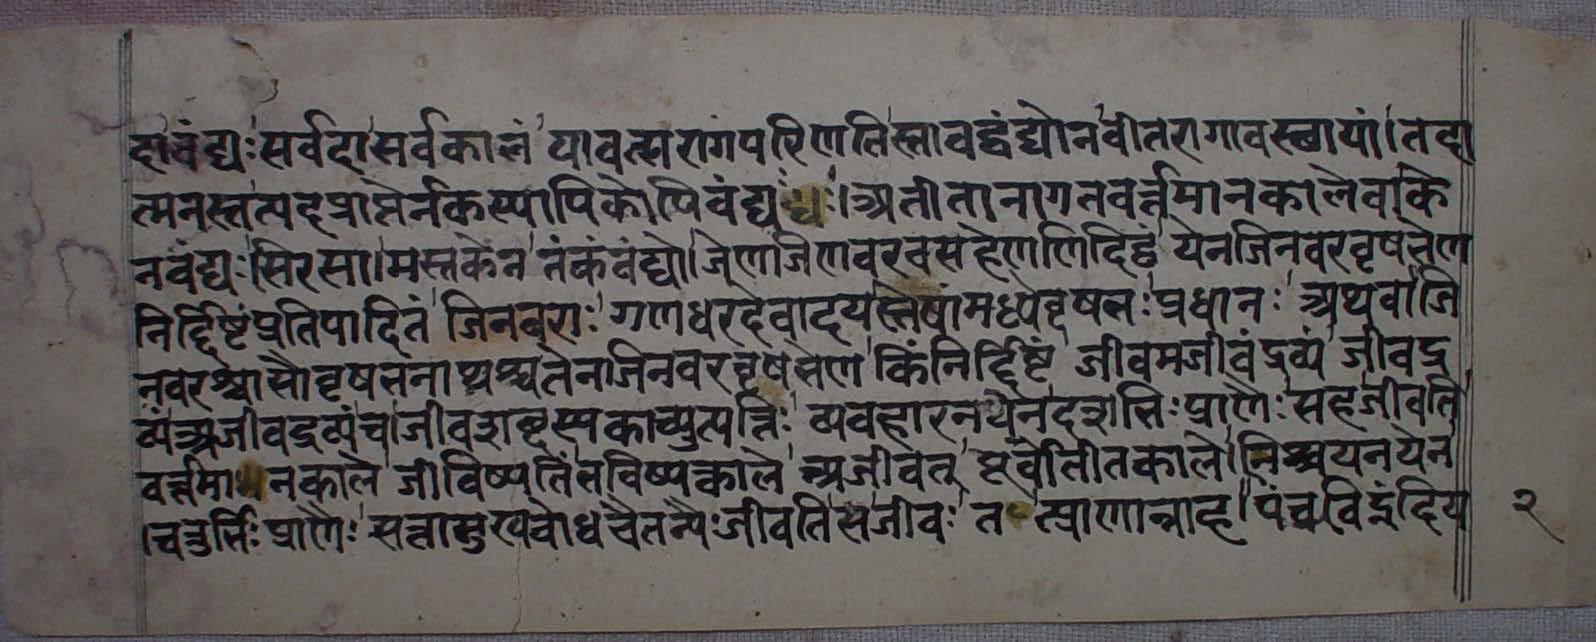 दा वंद्यः सर्वदा सर्वकालं यावत्सरागपरिणतिस्तावद्वंद्यो न वीतरागावस्थायां। तदा
त्मनस्तत्पदप्राप्तेर्न कस्यापि कोपि वंद्यः। अतीतानागतवर्त्तमानकाले व किं
न वंद्यः सिरसा। मस्तकेन तं कं वंद्यो। जेण जिणवरवसहेण णिदिट्ठं येन जिनवरवृषभेण
निर्द्दिष्टं प्रतिपादितं जिनवराः गणधरदेवादयस्तेषां मध्ये वृषभः प्रधानः अथवा जि
नवरश्चासौ वृषभनाथश्च तेन जिनवरवृषभेण किं निर्द्दिष्टं जीवमजीवं द्रव्यं जीवद्र
व्यं अजीवद्रव्यं च। जीवशब्दस्य का व्युत्पत्तिः व्यवहारनयेन दशभिः प्राणैः सह जीवति
वर्त्तमानकाले जीविष्यति भविष्यत्काले अजीवत् पूर्वेतीतकाले। निश्चयनयेन
। चतुर्भिः प्राणैः सत्तासुखबोधचैतन्यैः जीवति स जीवः त त्प्राणान्प्राह। पंचवि इंदिय
२